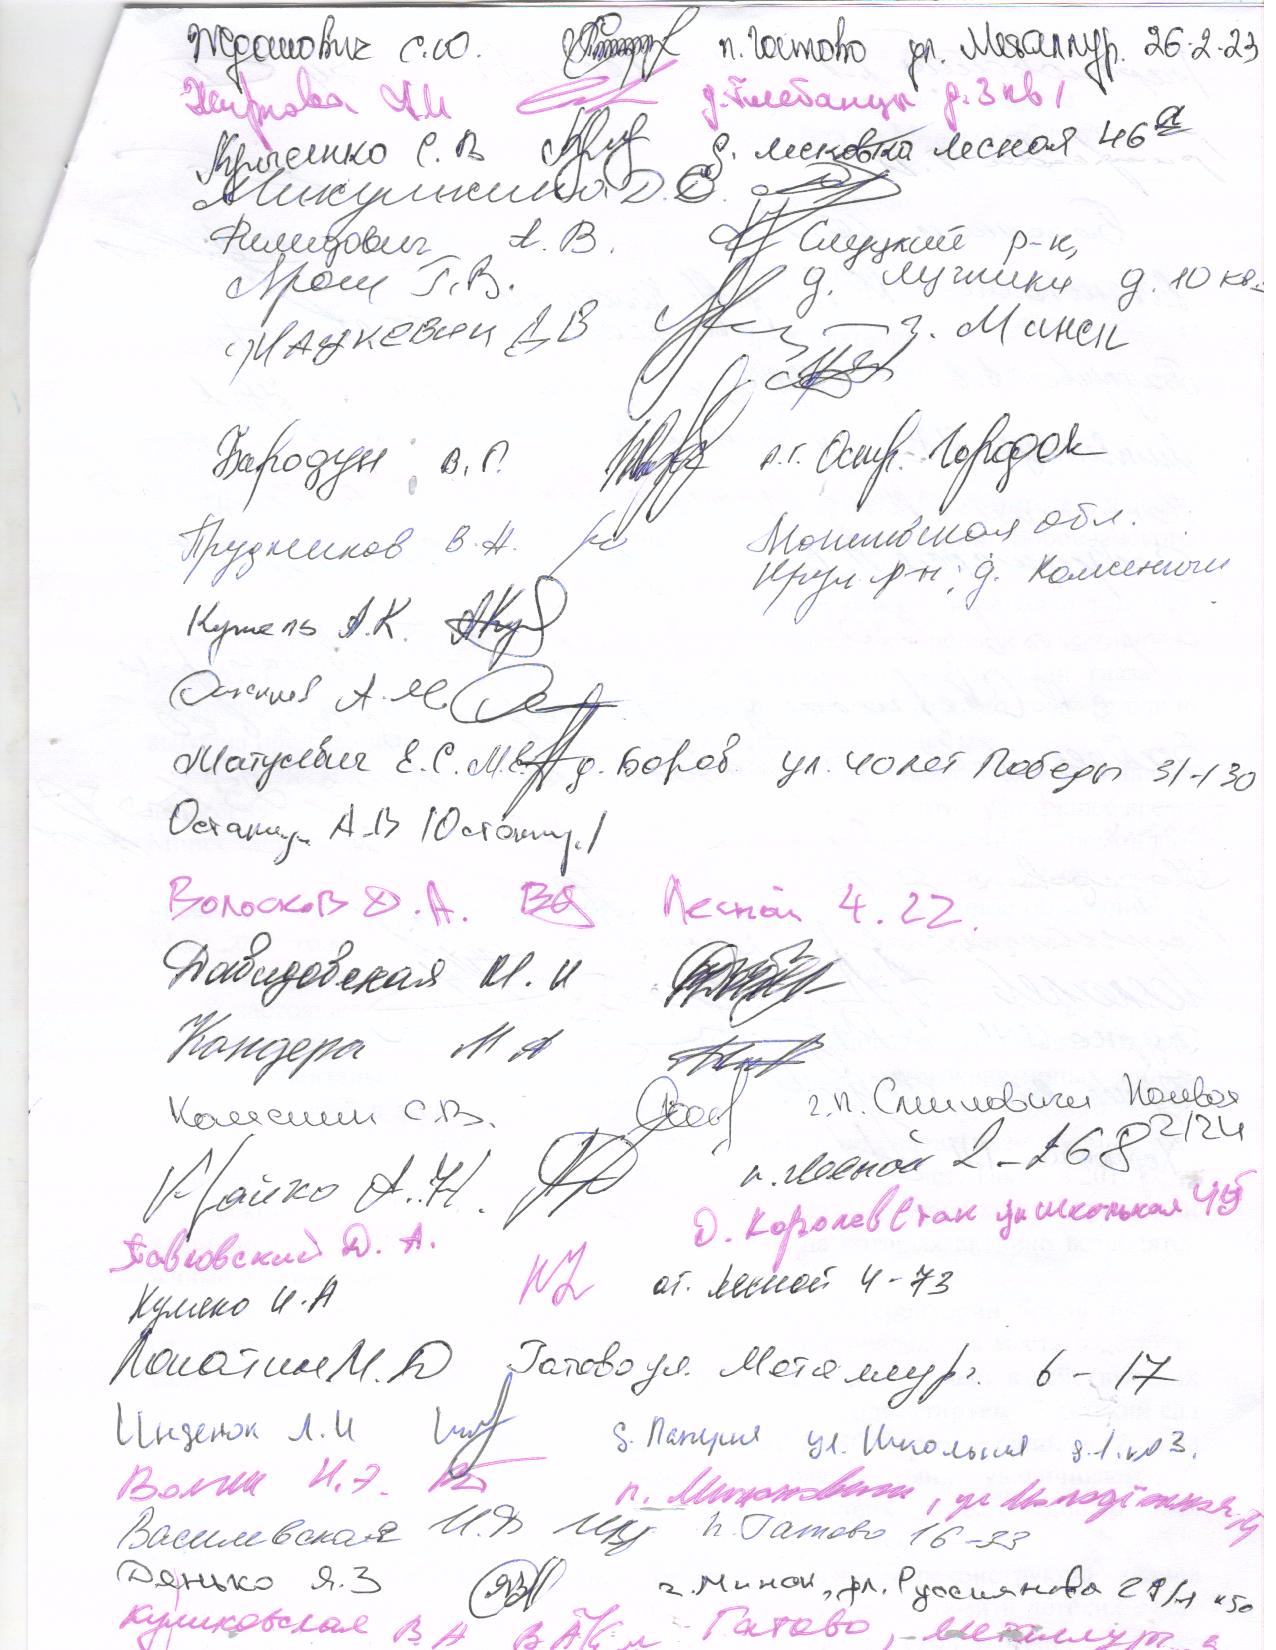 Жданович С.Ю. п. Гатово ул. Металлур. 26-2-23
Жиркова А.И д. д.3 кв 1
С.В д. лесковка лесная 46а
Микулинина Д.С.
Филидович А.В. Слуцкий р-н,
Ярош Т.В. д. Лучники д.10 кв.
Мацкевич Д В г. Минск
Бародун В.Г. а.г. Остр. Городок
Прудников В.Н. Могилёвская обл.
Круг. р-н; д. Каменичи
Кужель А.К.
А.М.
Матулевич Е.С. д. Боров. ул. 40 лет Победы 31-130
А.В
Волосков Д.А. Лесной 4.22.
Давидовская М.И
Кандера М А
С.В. г.п. Смиловичи
2/24
Майко А.Н. п. Лесной 2-268
Павловский Д.А. Д. Королев Стан ул Школьная 4
Кулеко И.А аг. Лесной 4-73
Лопатин М.Д Гатово ул. Металлург. 6-17
Инденюк Л.И д. Паперня ул. Школьная д.1.кв 3.
Волчик И.Э. п. Мичановичи, ул Молодёжная
Василевская И.В п. Гатово 16-23
Денько Я.З г. Минск, ул. Руссиянова 27/1 к50
Куликовская В А Гатово, металлург.